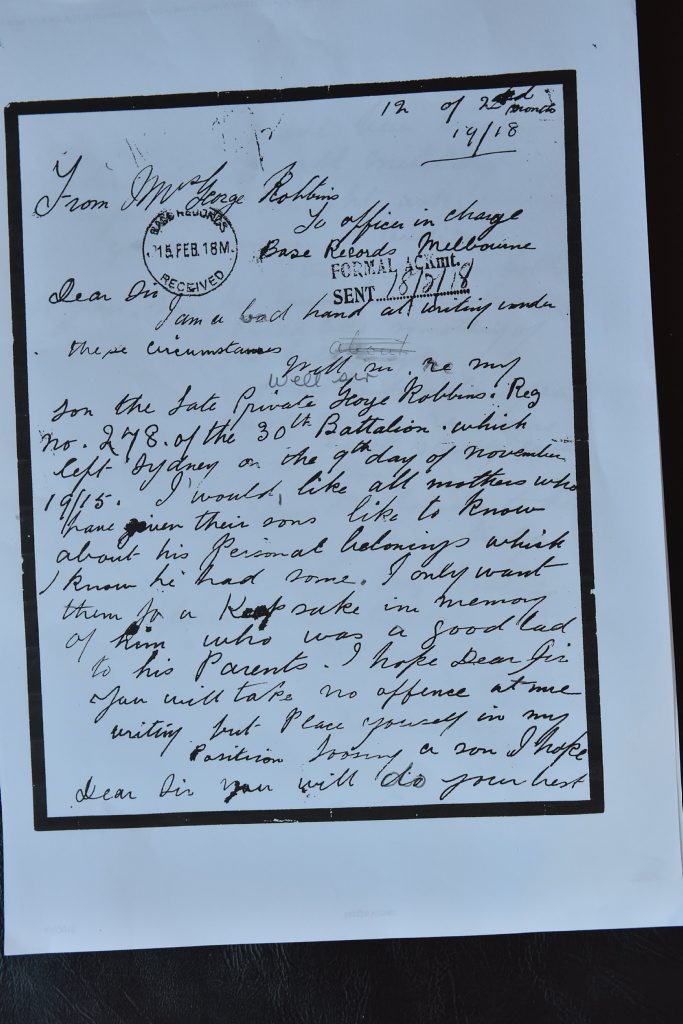 12 of 2nd month
19/18
From Mrs George Robbins
To officer in charge
BASE RECORDS
15 FEB. 18 M.
RECEIVED
Base Records Melbourne
FORMAL ACKmt.
SENT
Dear Sir
I am a bad hand at writing under
these circumstances about
Well sir. re my
Well sir
son the late Private George Robbins. Reg
no. 278. of the 30th Battalion. which
left Sydney on the 9th day of November
19/15. I would, like all mothers who
have given their sons like to know
about his Personal belonings which
I know he had some. I only want
them for a Keep sake in memory
of him who was a good lad
to his Parents. I hope Dear Sir
you will take no offence at me
writing but Place yourself in my
Position loosing a son I hope
Dear Sir you will do your best